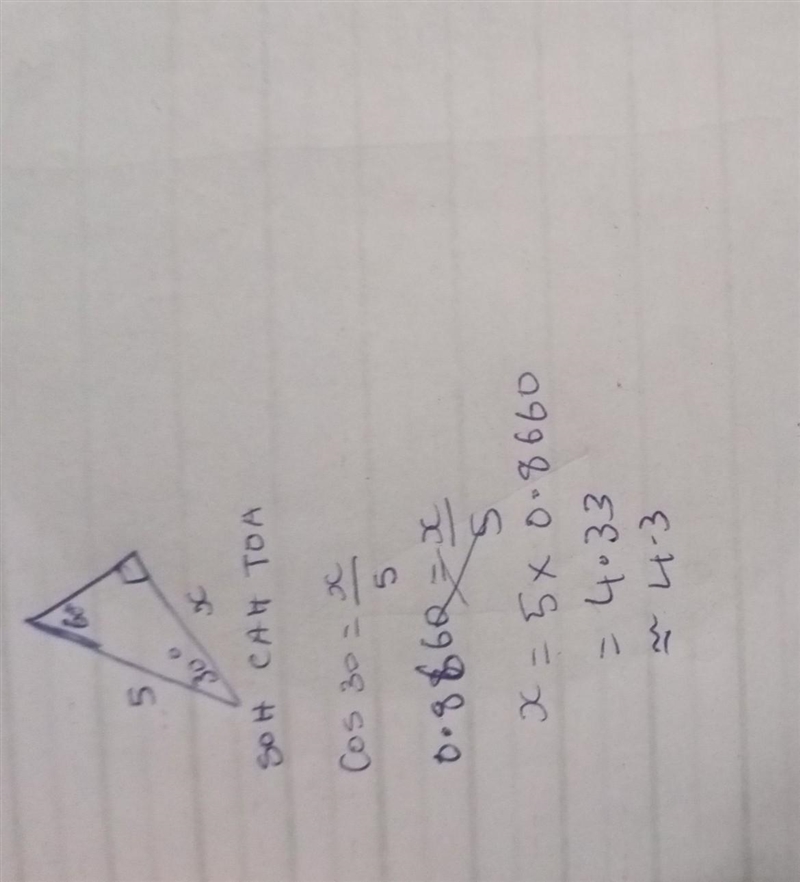 60°
5
30°
x
SOH CAH TOA
Cos 30 = x/5
0.8860 = x/5
x = 5 x 0.8660
= 4.33
≈ 4.3